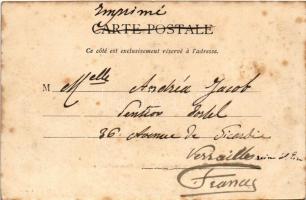 Imprimé
CARTE POSTALE
Ce côté est exclusivement réservé à l'adresse.
M elle Andréa Jacob
36 Avenue de Picardie
Versailles
France